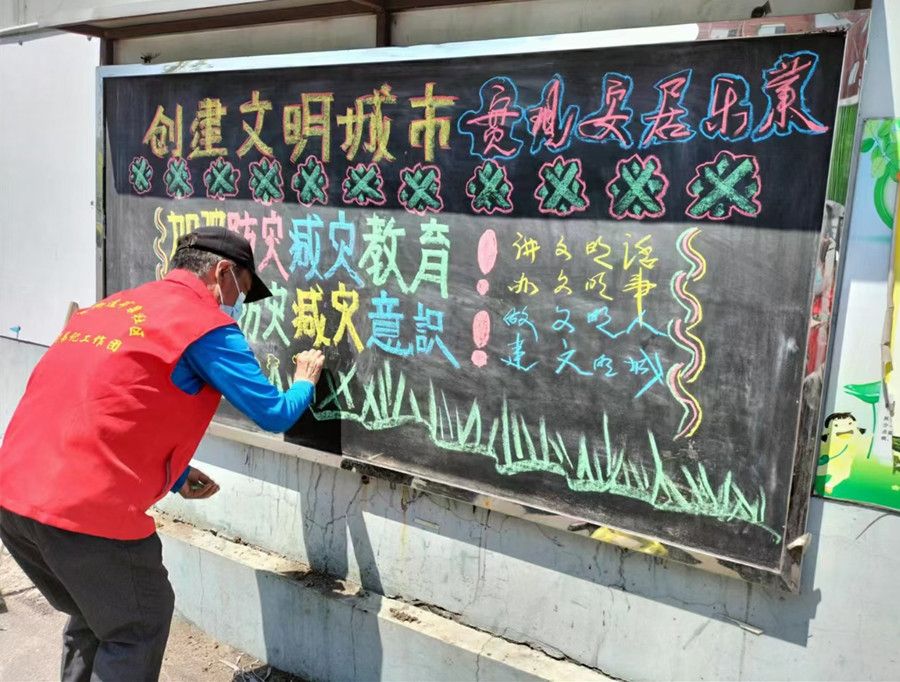 创建文明城市 實现安居乐業
加强防灾减灾教育
防灾减灾意識
讲文明话
办文明事
做文明人
建文明城
社区
书记工作团